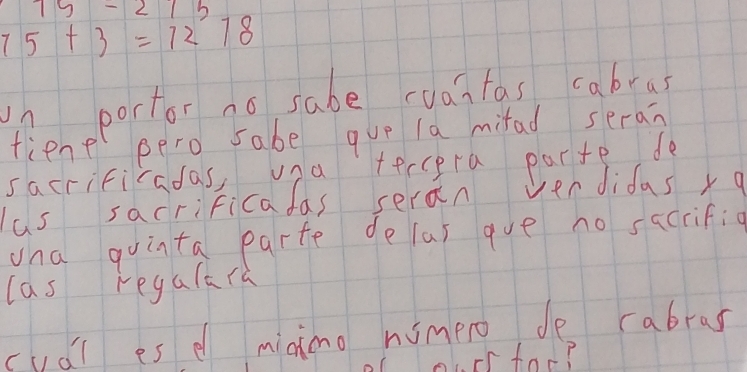 15 + 3 = 12 18
un portor no sabe cuantas cabras
tiene pero sabe que la mitad serán
sacrificadas, una tercera parte de
las sacrificadas serán vendidas y a
una quinta parte de las que no sacrifiq
las regalara
cuál es el número de cabras